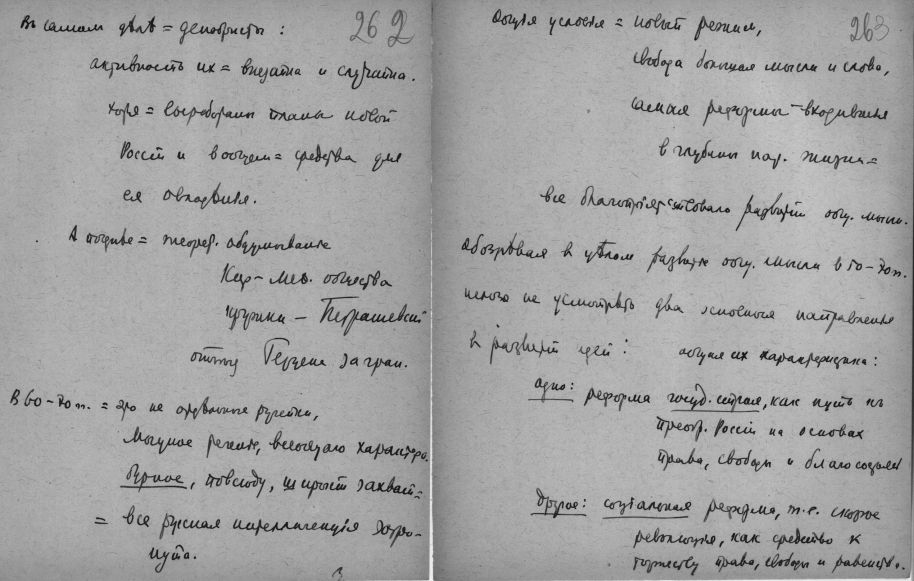 262
Въ самом дѣлѣ = декабристы:
активность их = внезапна и случайна.
хотя = выработаны планы новой
Россіи и вообщем = средства для
ея овладѣнія.
А позднѣе = теорет. обдумываніе
Кир-Меѳ. общества
кружки – Петрашевскій
оттуда Герцена за гран.
В 60–70 гг. = это не отдѣльные ручейки,
Мощное теченіе, всеобщаго характера.
Бурное, повсюду, широкій захват =
= вся русская интеллигенція затро-
нута.
263
Общія условія = новый режим,
свобода большая мысли и слова,
самыя реформы – входившія
в глубины нар. жизни =
все благопріятствовало развитію общ. мысли.
Обозрѣвая в цѣлом развитіе общ. мысли в 60–70 гг.
нельзя не усмотрѣть два основныя направленія
в развитіи идей: общая их характеристика:
одно: реформа госуд. строя, как путь къ
преобр. Россіи на основах
права, свободы и благосостоян
другое: соціальная реформа, т.е. скорѣе
революція, как средство к
торжеству права, свободы и равенства.